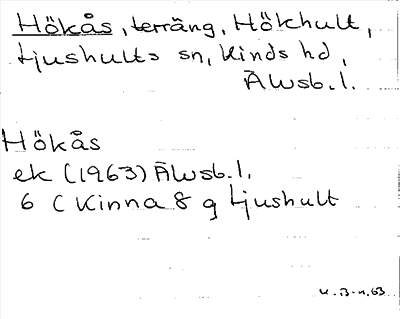 Hökås, terräng, Hökhult,
Ljushults sn, Kinds hd,
Älvsb. l.
Hökås
ek (1963) Älvsb. l.
6 C Kinna 8 g Ljushult